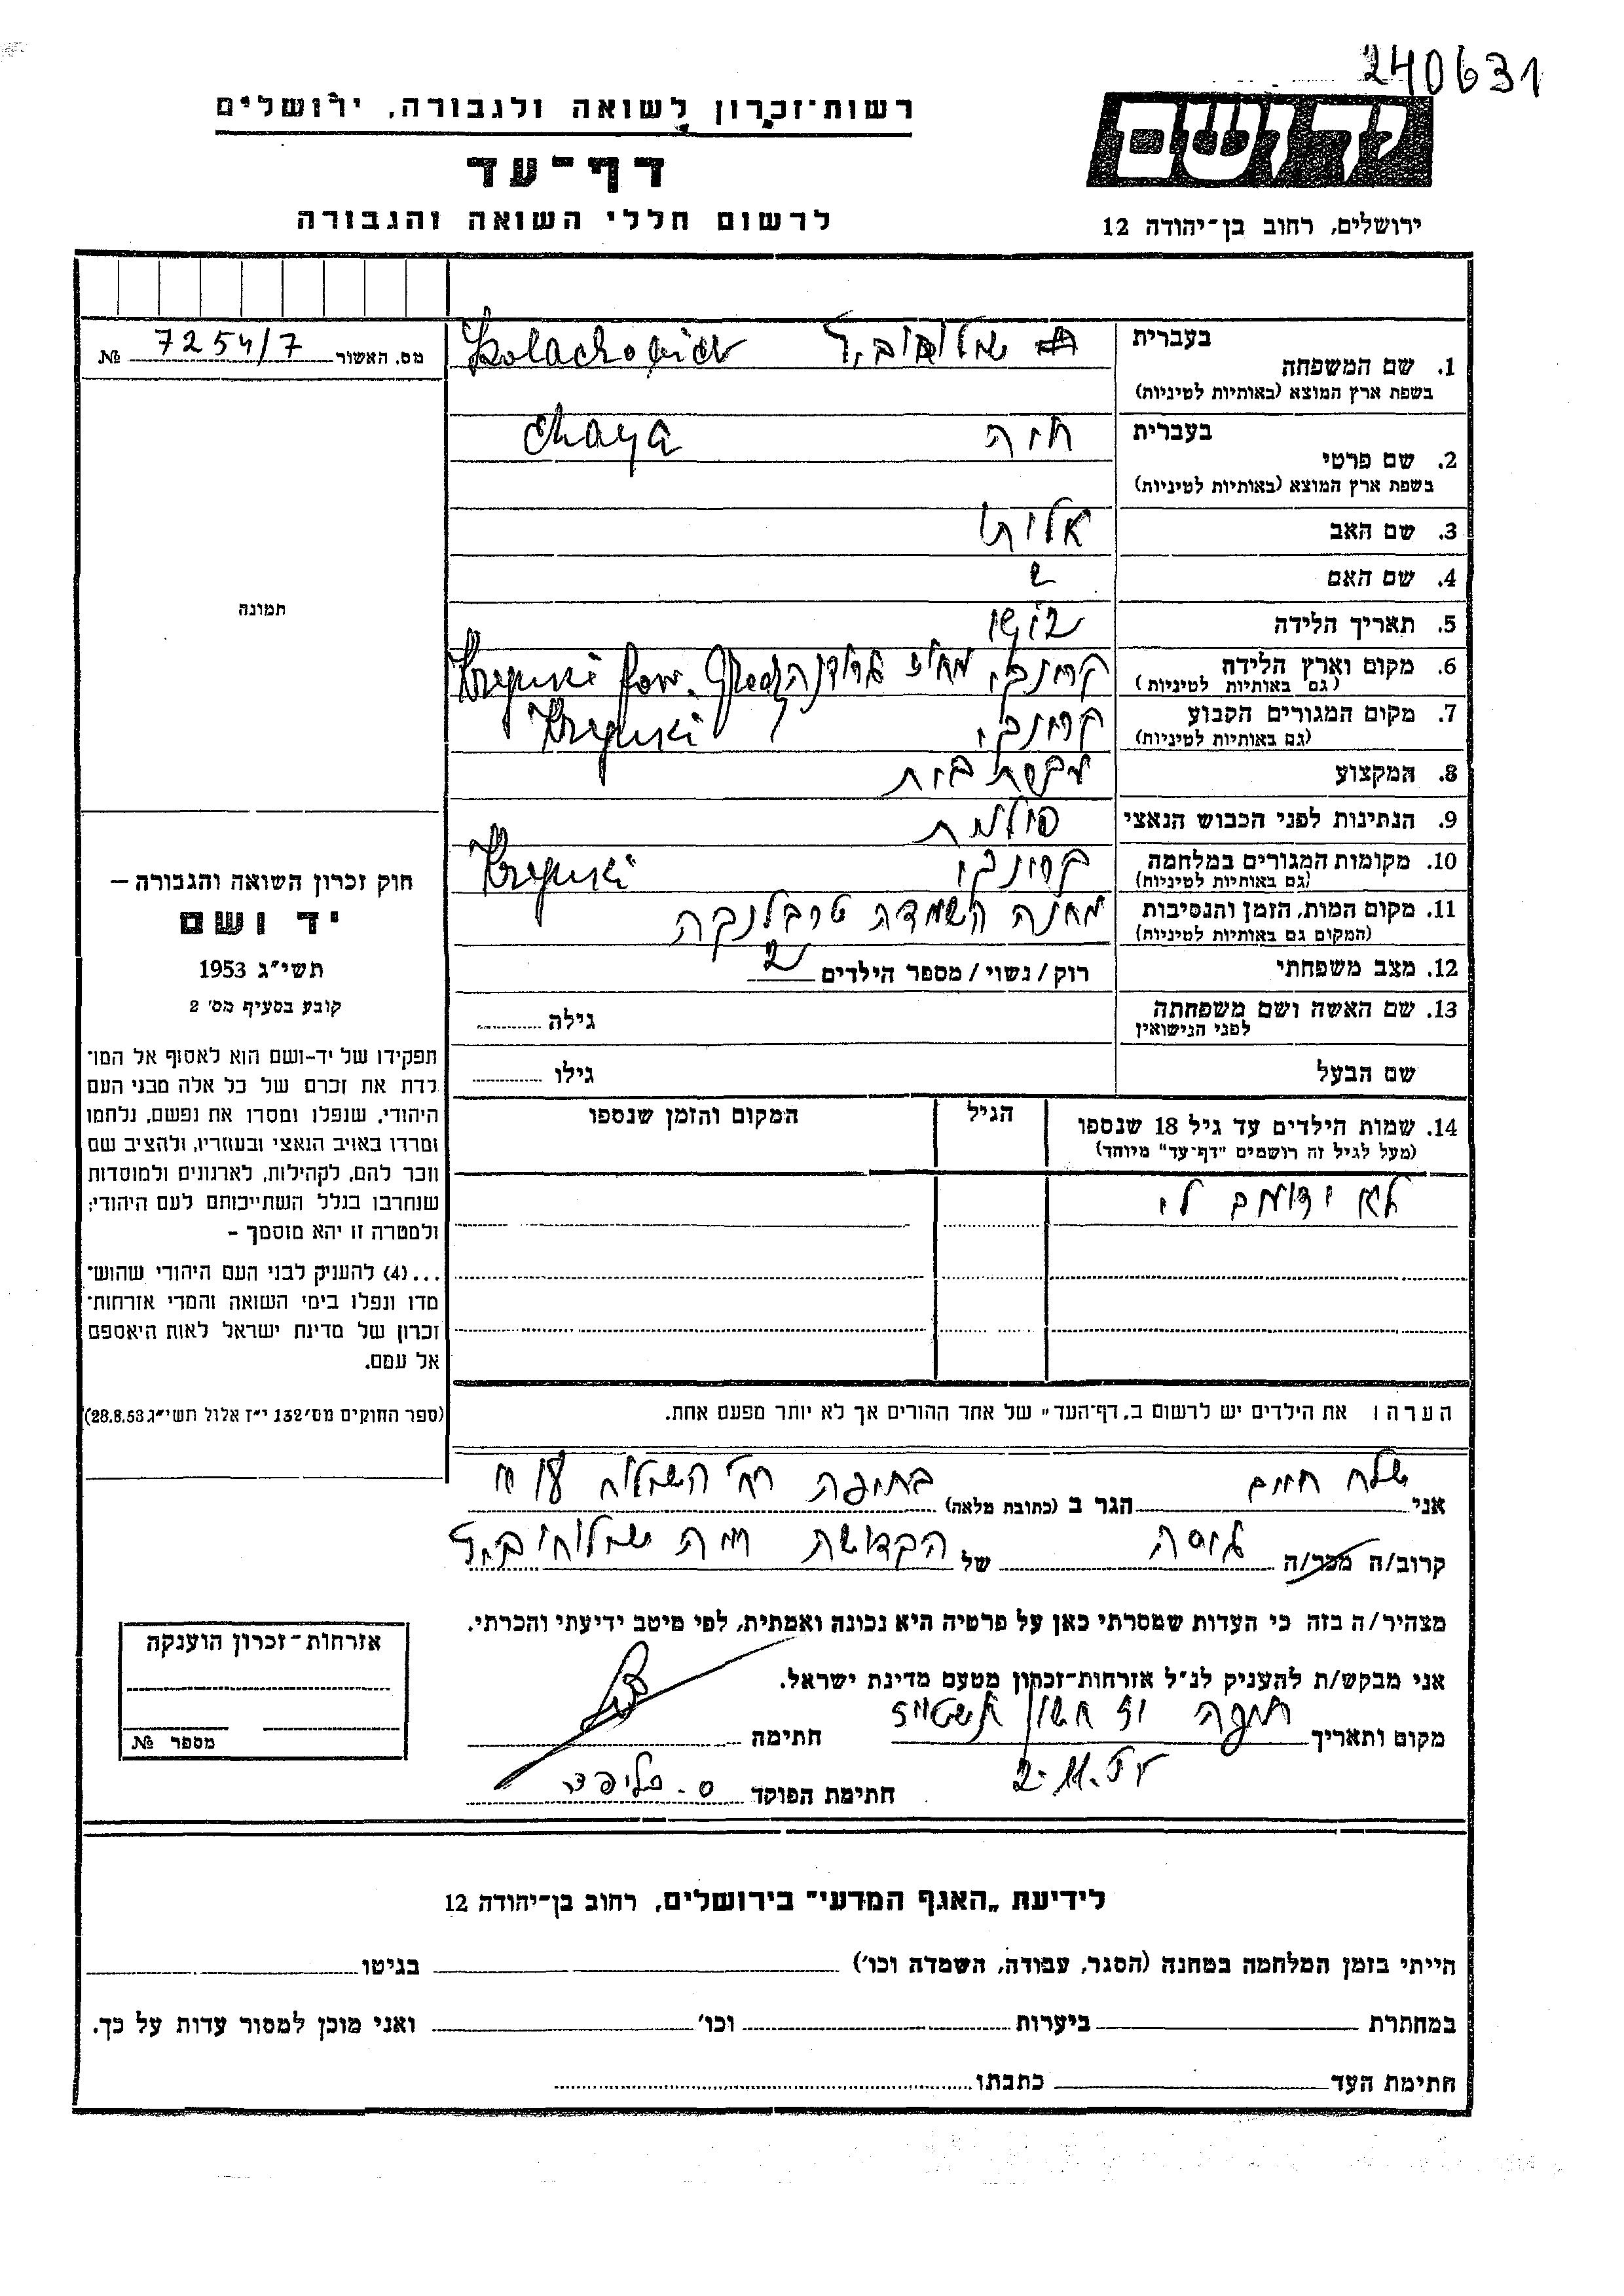 240631
רשות־זכרון לשואה ולגבורה, ירושלים
ידושם
דף־עד
לרשום חללי השואה והגבורה
ירושלים, רחוב בן־יהודה 12
מס. האשור 7254/7 №
בעברית
1. שם המשפחה
בשפת ארץ המוצא (באותיות לטיניות)
בעברית חיה Chaya
2. שם פרטי
בשפת ארץ המוצא (באותיות לטיניות)
3. שם האב אליהו
4. שם האם
תמונה
5. תאריך הלידה
6. מקום וארץ הלידה קרינקי, מחוז גרודנה Krynki pow.
(גם באותיות לטיניות)
7. מקום המגורים הקבוע קרינקי Krynki
(גם באותיות לטיניות)
8. המקצוע עקרת בית
9. הנתינות לפני הכבוש הנאצי פולנית
10. מקומות המגורים במלחמה קרינקי Krynki
(גם באותיות לטיניות)
11. מקום המות, הזמן והנסיבות מחנה השמדה טרבלינקה
(המקום גם באותיות לטיניות)
12. מצב משפחתי רוק / נשוי / מספר הילדים 2
13. שם האשה ושם משפחתה
לפני הנישואין
גילה
שם הבעל גילו
14. שמות הילדים עד גיל 18 שנספו
(מעל לגיל זה רושמים "דף־עד" מיוחד)
הגיל
המקום והזמן שנספו
לא ידועים לי
הערה: את הילדים יש לרשום ב„דף־העד" של אחד ההורים אך לא יותר מפעם אחת.
חוק זכרון השואה והגבורה —
יד ושם
תשי"ג 1953
קובע בסעיף מס' 2
תפקידו של יד-ושם הוא לאסוף אל המו־
לדת את זכרם של כל אלה מבני העם
היהודי, שנפלו ומסרו את נפשם, נלחמו
ומרדו באויב הנאצי ובעוזריו, ולהציב שם
וזכר להם, לקהילות, לארגונים ולמוסדות
שנחרבו בגלל השתייכותם לעם היהודי;
ולמטרה זו יהא מוסמך –
...(4) להעניק לבני העם היהודי שהוש־
מדו ונפלו בימי השואה והמרי אזרחות־
זכרון של מדינת ישראל לאות היאספם
אל עמם.
(ספר החוקים מס' 132 י"ז אלול תשי"ג 28.8.53)
אני שלח חיים הגר ב (כתובת מלאה) בחיפה רח' השילוח
קרוב/ה מכר/ה גיסה של הקדושה חיה
מצהיר/ה בזה כי העדות שמסרתי כאן על פרטיה היא נכונה ואמתית, לפי מיטב ידיעתי והכרתי.
אני מבקש/ת להעניק לנ"ל אזרחות־זכרון מטעם מדינת ישראל.
מקום ותאריך חיפה חשון חתימה
2.11.55
חתימת הפוקד
אזרחות־זכרון הוענקה
מספר №
לידיעת „האגף המדעי" בירושלים, רחוב בן־יהודה 12
הייתי בזמן המלחמה במחנה (הסגר, עבודה, השמדה וכו') בגיטו
במחתרת ביערות וכו' ואני מוכן למסור עדות על כך.
חתימת העד כתבתו